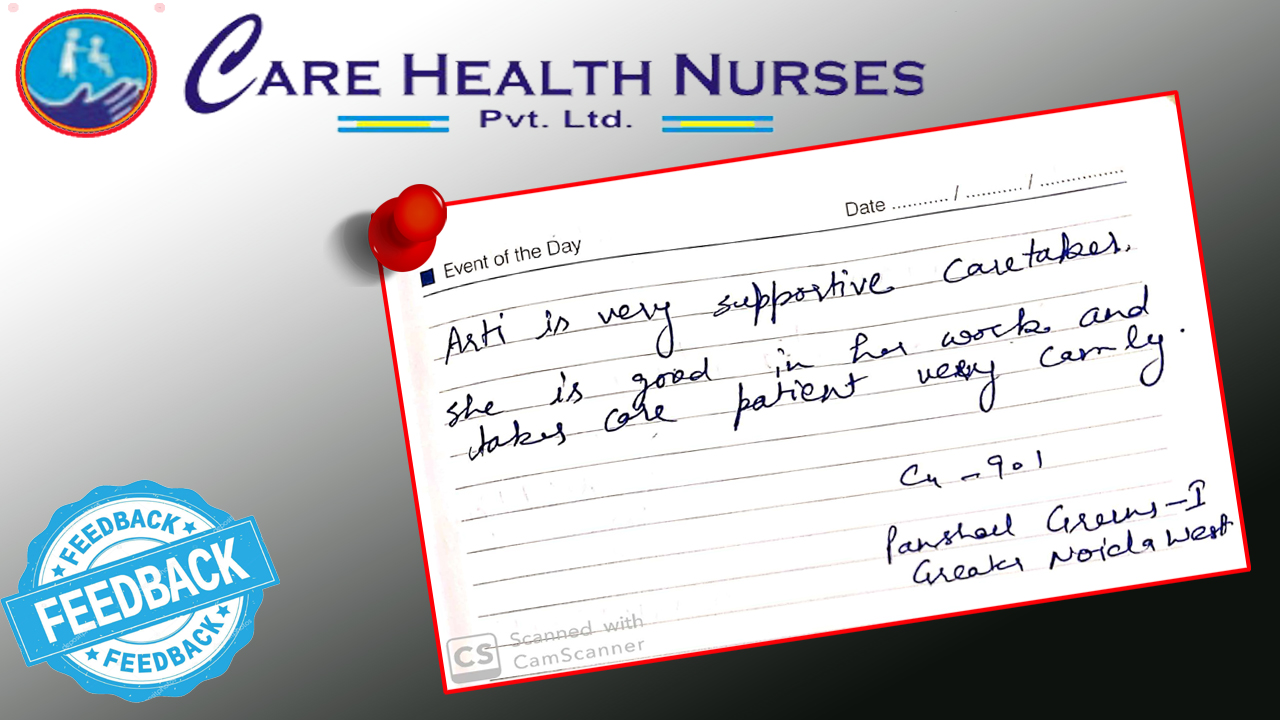 CARE HEALTH NURSES
Pvt. Ltd.
Date ........... / ........... / ................
Event of the Day
Arti is very supportive Caretaker.
she is good in her work and
takes care patient very camly.
C4 - 901
Pansheel Greens-I
Greater Noida West
CS Scanned with
CamScanner
FEEDBACK
FEEDBACK
FEEDBACK